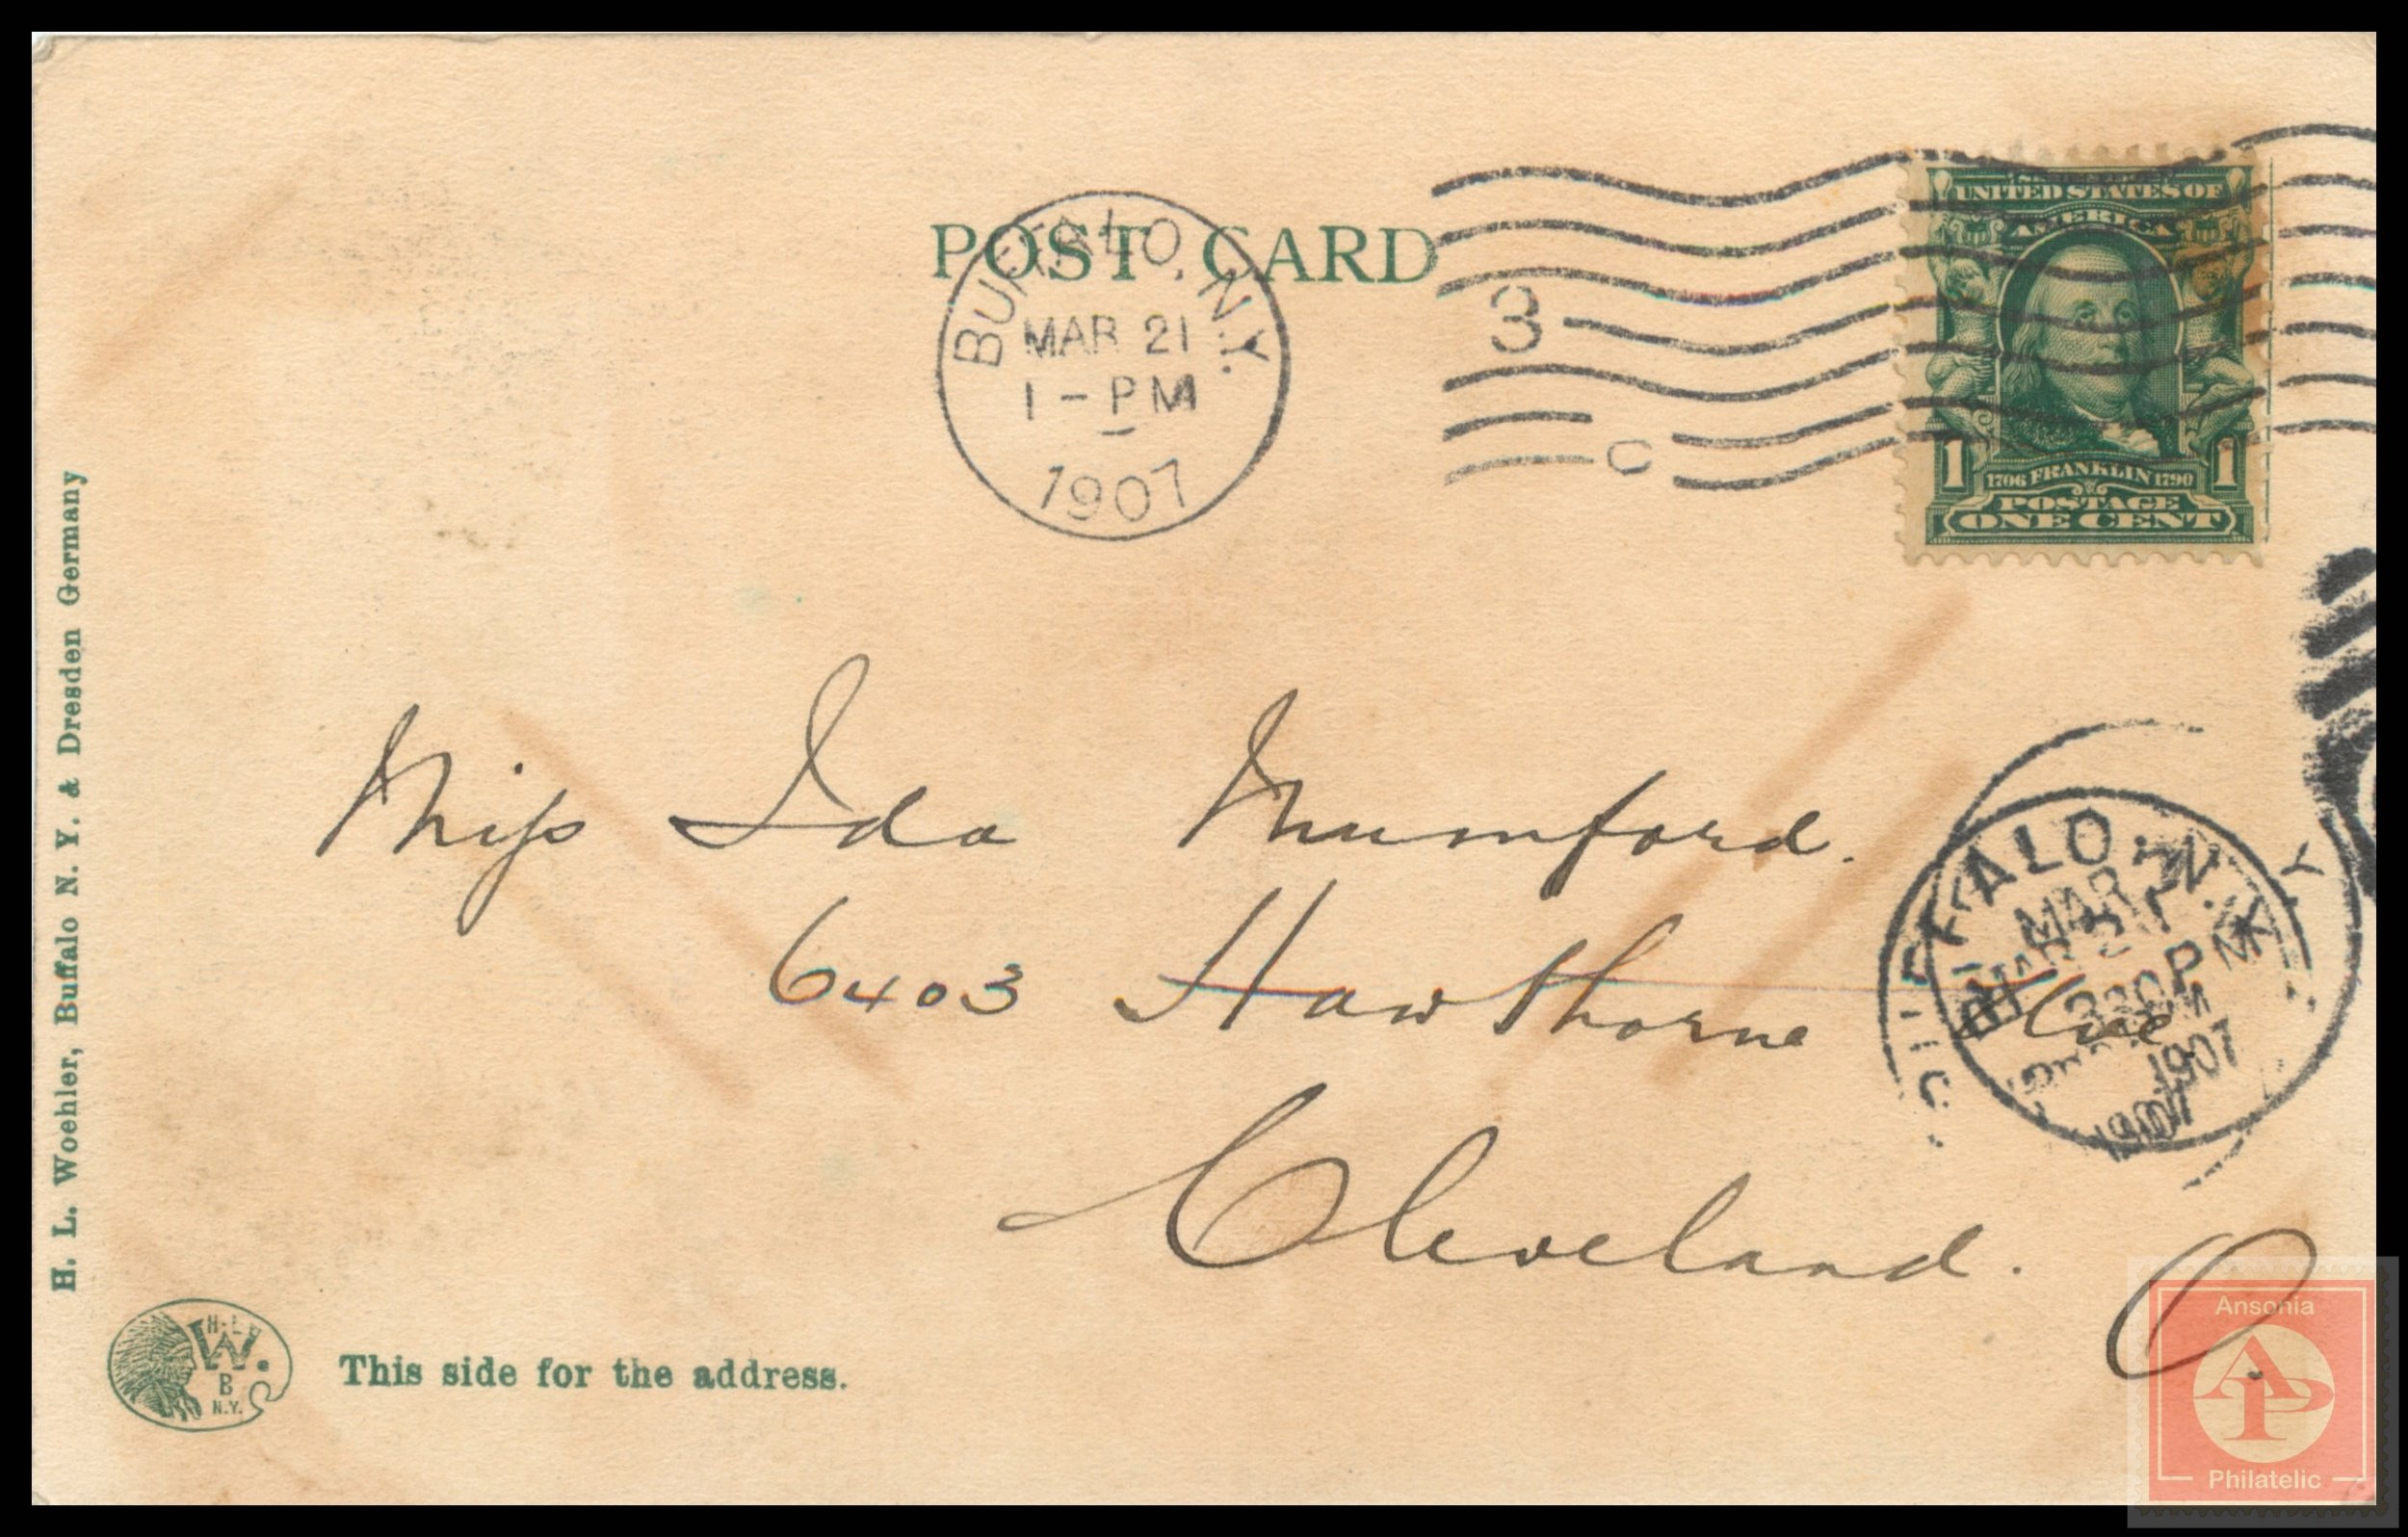 POST CARD
BUFFALO, N.Y.
MAR 21
1 - PM
1907
3
C
UNITED STATES OF
AMERICA
1 1706 FRANKLIN 1790 1
POSTAGE
ONE CENT
Miss Ida Mumford.
6403 Hawthorne Ave
Cleveland. O.
BUFFALO, N.Y.
MAR
1907
1907
H. L. Woehler, Buffalo N. Y. & Dresden Germany
H. L.
W.
B
N.Y.
This side for the address.
Ansonia
AP
Philatelic